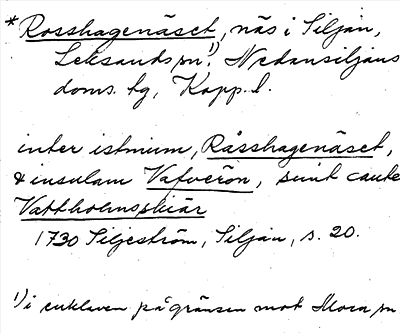 *Rosshagenäset, näs i Siljan,
Leksands sn¹⁾, Nedansiljans
doms. hg, Kopp. l.
inter istmium, Råsshagenäset,
& insulam Vafverön, sunt caute
Vattholmskiär
1730 Siljeström, Siljan, s. 20.
¹⁾ i enklaven på gränsen mot Mora sn